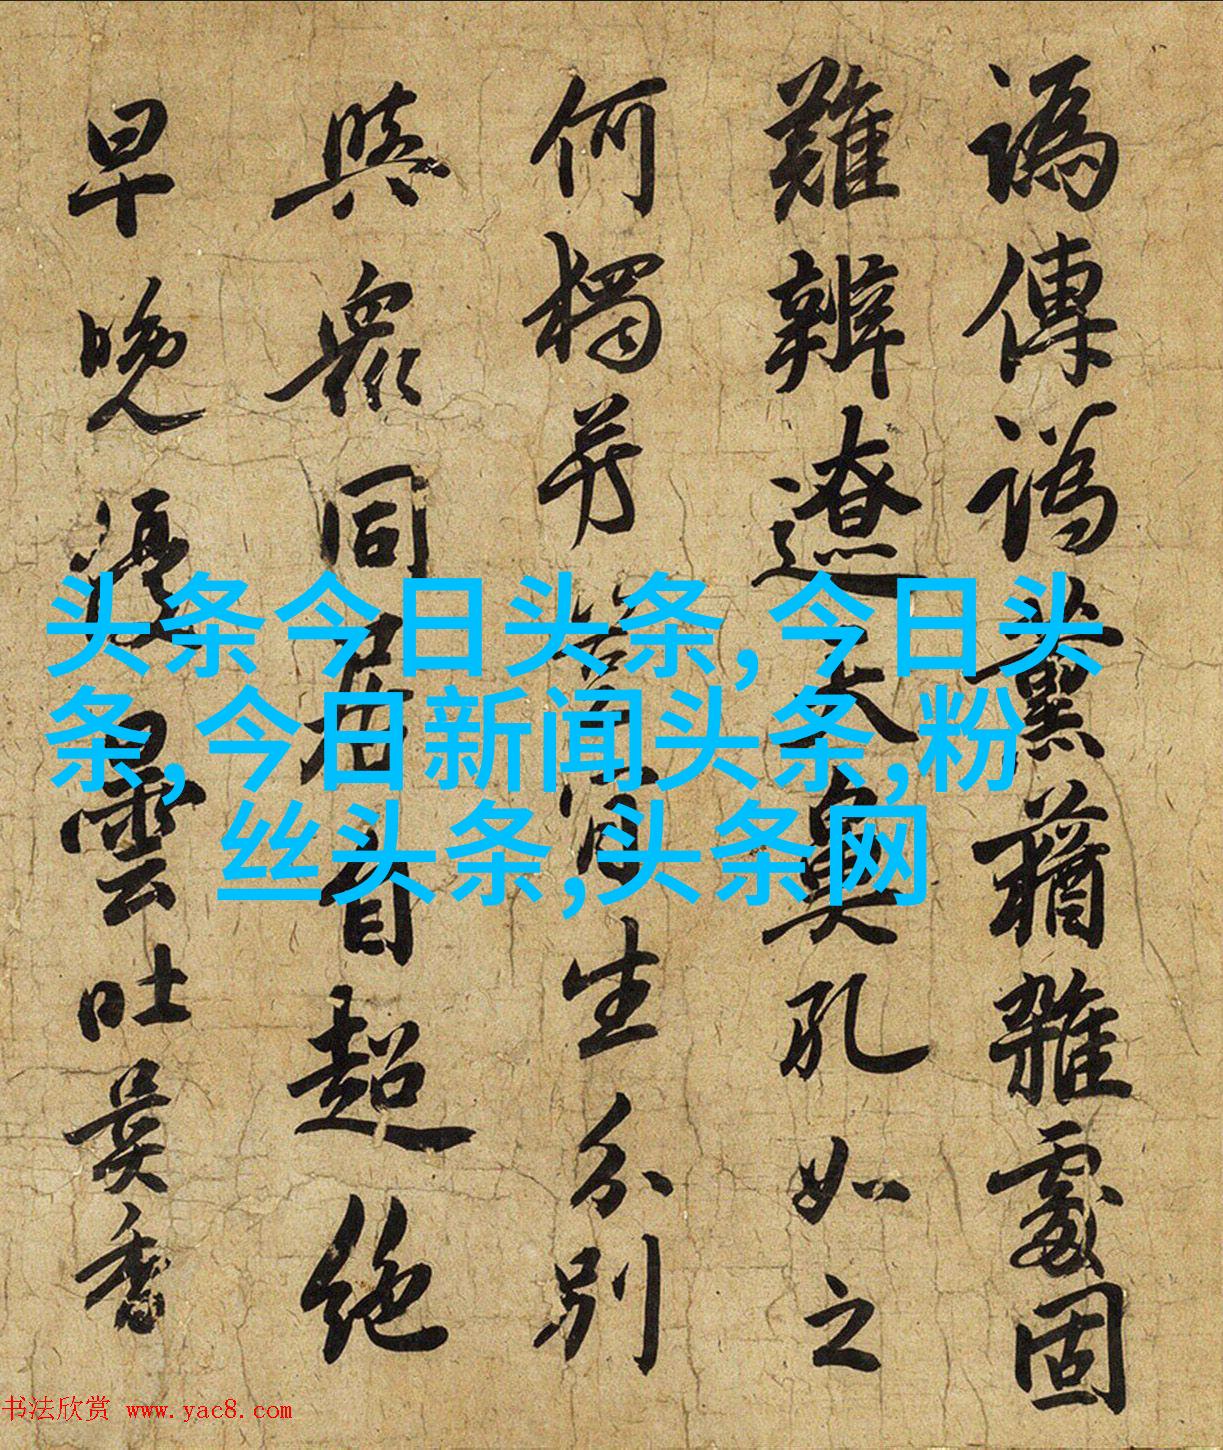 譌傳譌薰蕕雜處固
難辨遼天臭孔如之
何獨生分別
與眾同居自超絕
早晚優曇吐異香
头条今日头条, 今日头
条, 今日新闻头条,粉
丝头条,头条网
书法欣赏 www.yac8.com